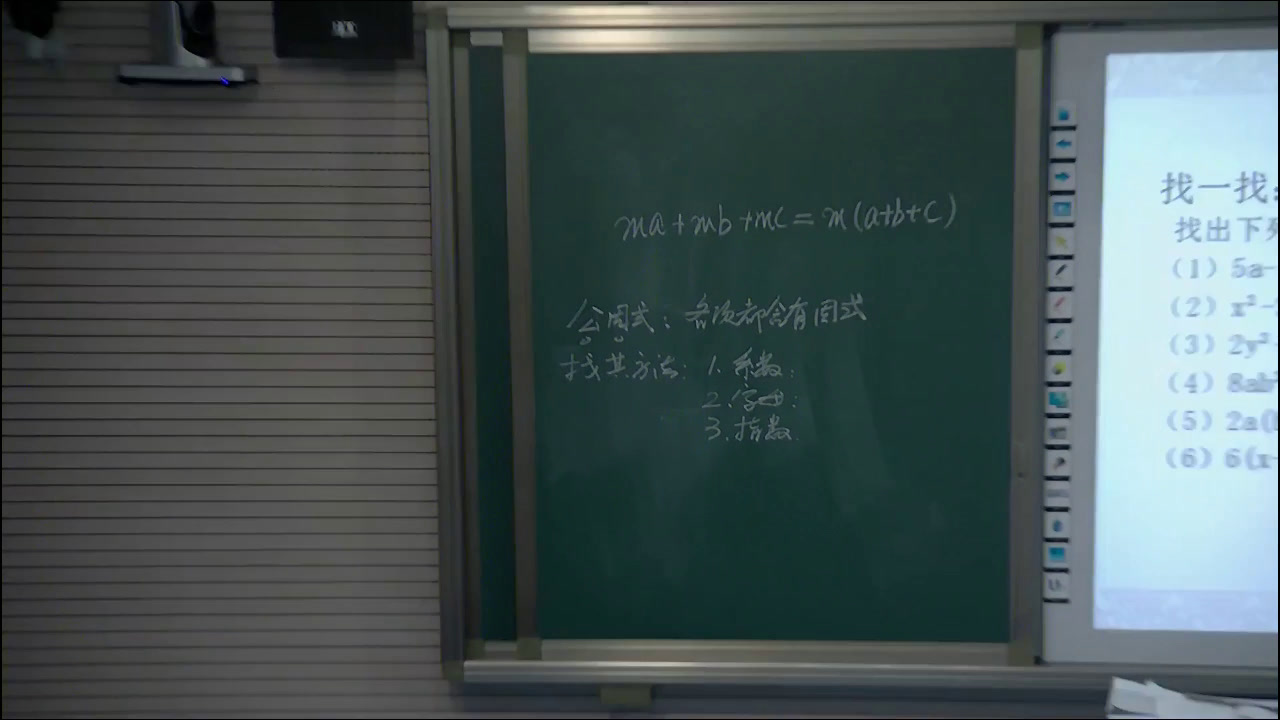 ma+mb+mc=m(a+b+c)
公因式：各项都含有因式
找其方法：1.系数：
2.字母：
3.指数
找一找：
找出下列
（1）5a-
（2）x²-
（3）2y²
（4）8ab
（5）2a(
（6）6(x-